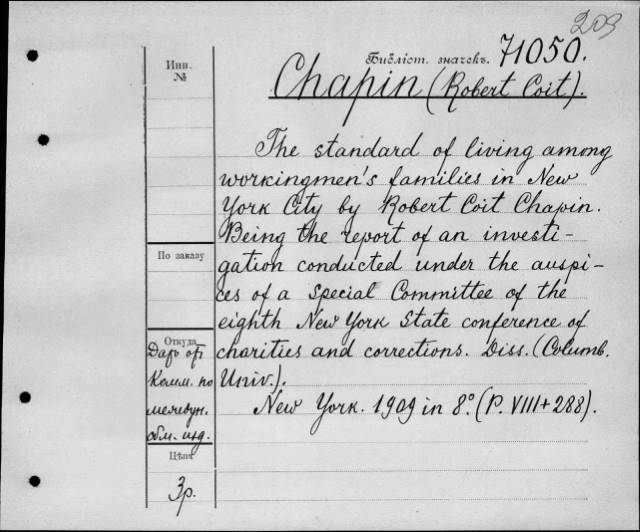 203
Библіот. значекъ. 71050.
Инв.
№
Chapin (Robert Coit).
The standard of living among
workingmen's families in New
York City by Robert Coit Chapin.
Being the report of an investi-
gation conducted under the auspi-
ces of a Special Committee of the
eighth New York State conference of
charities and corrections. Diss. (Columb.
Univ.).
New York. 1909 in 8° (P. VIII+288).
По заказу
Откуда
Даръ от
Комм. по
межвун.
обм. изд.
Цѣна
3р.